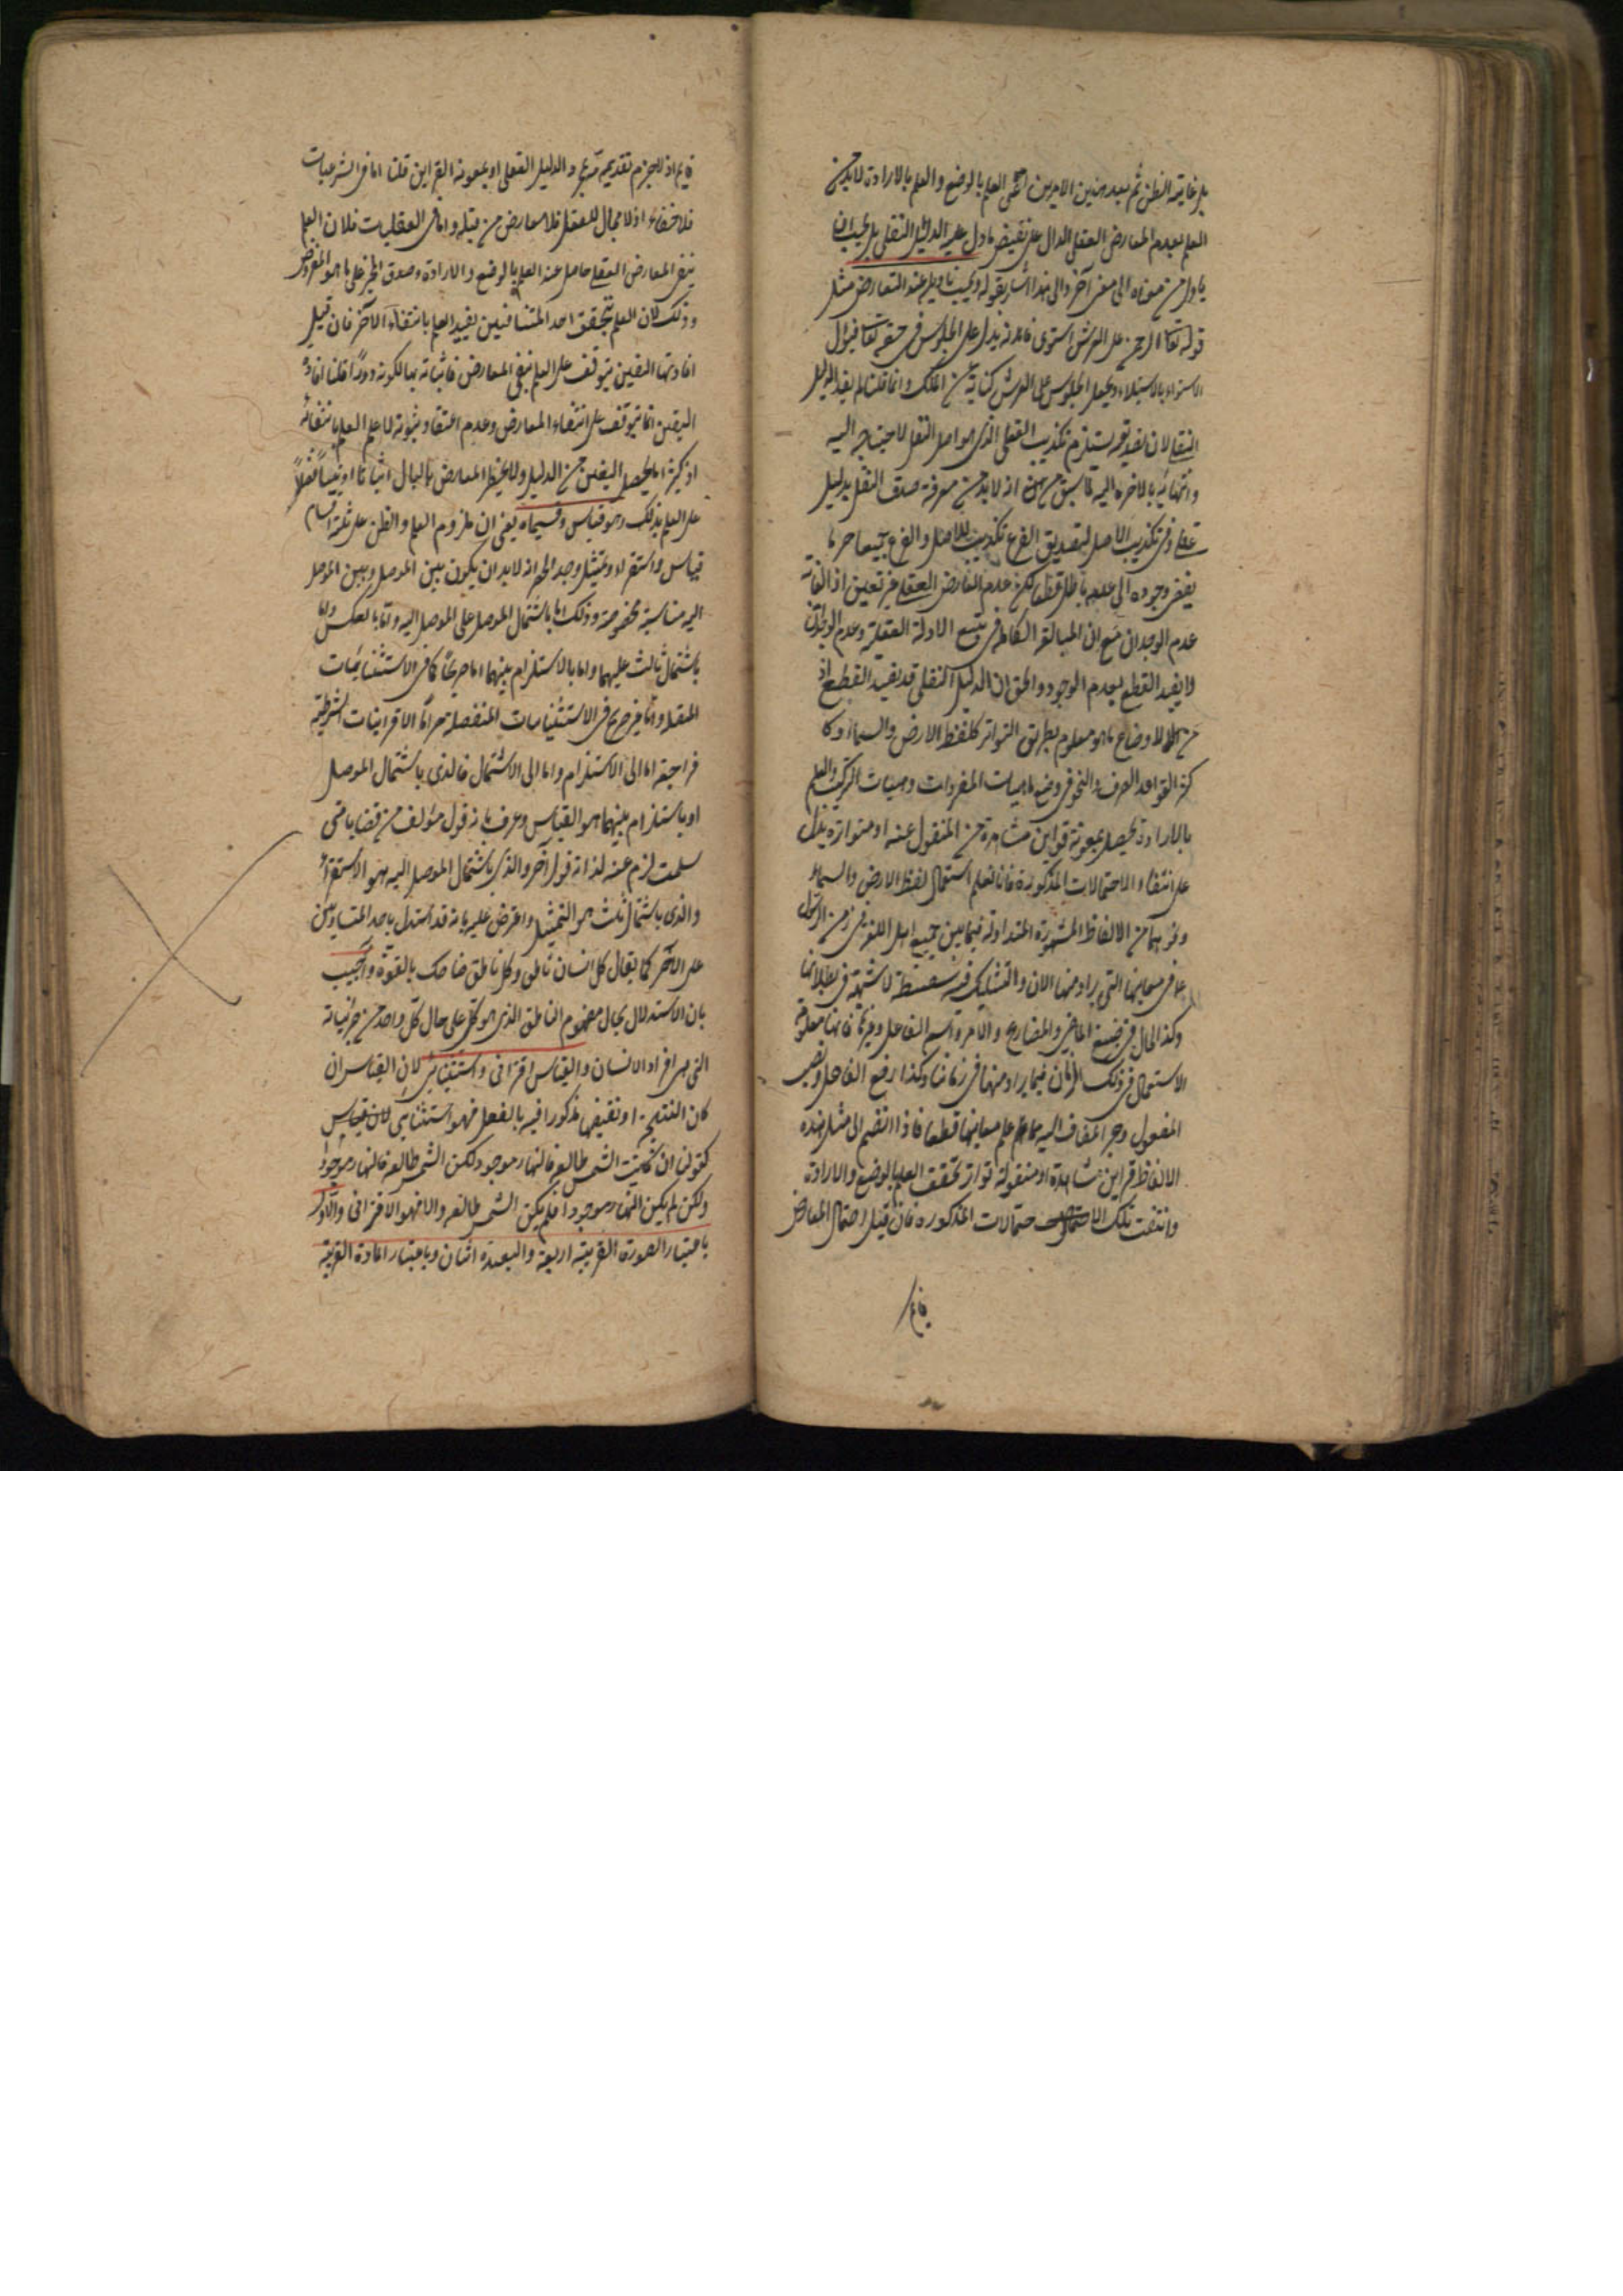 بل غايته الظن ثم بعد هذين الامرين اعنى العلم بالوضع والعلم بالارادة لا بد من
العلم بعدم المعارض العقلى الدال على نقيض ما دل عليه الدليل النقلى بل يجب ان
ياول من معناه الى معنى آخر والى هذا اشار بقوله ويجب تاويله عند التعارض مثل
قوله تعا الرحمن على العرش استوى فانه يدل على الجلوس فى حقه تعا فيؤل
الاستواء بالاستيلاء ويجعل الجلوس على العرش كناية عن الملك وانما قلنا لم يفد الدليل
النقلى لان تقديمه يستلزم تكذيب العقل الذى هو اصل النقل لاحتياجه اليه
وانتهائه بالاخرة اليه لما سبق من انه لا بد من معرفة صدق النقل بدليل
عقلى وفى تكذيب الاصل لتصديق الفرع تكذيب للاصل والفرع جميعا وما
يفضى وجوده الى عدمه باطل قطعا لكن عدم المعارض العقلى غير متعين اذ الغاية
عدم الوجدان مع ان المبالغة الكاملة فى تتبع الادلة العقلية وعدم الوجدان
لا يفيد القطع بعدم الوجود والحق ان الدليل النقلى قد يفيد القطع اذ
من الاوضاع ما هو معلوم بطريق التواتر كلفظ الارض والسماء وكا
كثر القواعد الصرف والنحو فى وضع هيات المفردات وهيات التركيب والعلم
بالارادة يحصل بمعونة قراين مشاهدة من المنقول عنه او متواترة يدل
على انتفاء الاحتمالات المذكورة فانا نعلم استعمال لفظ الارض والسماء
ونحوهما من الالفاظ المشهورة المتداولة فيما بين جميع اهل اللغة فى زمن الرسول
على فى معانيها التى يراد منها الان والتشكيك فيه سفسطة لا شبهة فى بطلانها
وكذا الحال فى صيغ الماضى والمضارع والامر واسم الفاعل وغيرها فانها معلومة
الاستعمال فى ذلك الزمان فيما يراد منها فى زماننا وكذا رفع الفاعل ونصب
المفعول وجر المضاف اليه مما علم معانيها قطعا فاذا انضم الى مثل هذه
الالفاظ قراين مشاهدة او منقولة تواترا تحقق العلم بالوضع والارادة
وانتفت تلك الاحتمالات المذكورة فان قيل احتمال المعارض
قايم
قايم اذ لا جزم بعدمه بمجرد الدليل النقلى او بمعونة القراين قلنا اما فى الشرعيات
فلا خفاء اذ لا مجال للعقل فلا معارض من قبله واما فى العقليات فلان العلم
بنفى المعارض العقلى حاصل عند العلم بالوضع والارادة وصدق المخبر على ما هو المفروض
وذلك لان العلم بتحقق احد المتنافيين يفيد العلم بانتفاء الآخر فان قيل
افادتها اليقين يتوقف على العلم بنفى المعارض فاثباته بها لكونه دورًا قلنا افادة
اليقين انما يتوقف على انتفاء المعارض وعدم اعتقاد ثبوته لا على العلم بانتفائه
اذ كثيرا ما يحصل اليقين من الدليل ولا يخطر المعارض بالبال اثباتا او نفيا فضلاً
على العلم بذلك وهو قياس وقسيماه يعنى ان ملزوم العلم والظن على ثلثة اقسام
قياس واستقراء وتمثيل وجه الحصر انه لا بد ان يكون بين الموصل وبين الموصل
اليه مناسبة مخصوصة وذلك اما باشتمال الموصل على الموصل اليه واما بالعكس واما
باشتمال ثالث عليهما واما بالاستلزام بينهما اما صريحًا كما فى الاستثنائيات
المتصلة واما غير صريح فى الاستثنايات المنفصلة واما الاقترانيات الشرطية
فراجعة اما الى الاستلزام واما الى الاشتمال فالذى باشتمال الموصل
او باستلزام بينهما هو القياس وعرف بانه قول مؤلف من قضايا متى
سلمت لزم عنه لذاته قول آخر والذى باشتمال الموصل اليه هو الاستقراء
والذى باشتمال ثلث هو التمثيل واعترض عليه بانه قد استدل باحد المتساويين
على الآخر كما يقال كل انسان ناطق وكل ناطق ضاحك بالقوة واجيب
بان الاستدلال بحال مفهوم الناطق الذى هو كلى على حال كل واحد من جزئياته
التى هى افراد الانسان والقياس اقترانى واستثنايى لان القياس ان
كان النتيجة او نقيضها مذكورا فيه بالفعل فهو استثنايى
كقولنا ان كانت الشمس طالعة فالنهار موجود لكن الشمس طالعة فالنهار موجود
ولكن لم يكن النهار موجودا فلم يكن الشمس طالعة والا فهو الاقترانى والاول
باعتبار الصورة القريبة اربعة والبعيدة اثنان وباعتبار المادة القريبة